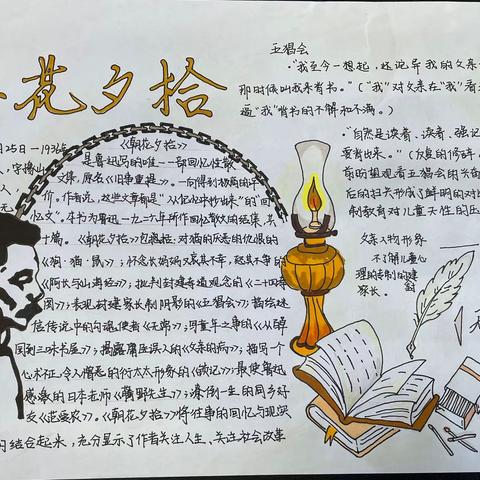 花夕拾
月25日一1936年
《朝花夕拾》
是鲁迅写的唯一一部回忆性散
文集，原名《旧事重提》。一向得到极高的评
价。作者说，这些文章都是"从记忆中抄出来"的"回
忆文"。本书为鲁迅一九二六年所作回忆散文的结集，共
十篇。《朝花夕拾》包括：对猫的厌恶的仇恨的
《狗·猫·鼠》；怀念长妈妈
《阿长与山海经》；批判封建孝道观念的《二十四孝
图》；表现封建家长制阴影的《五猖会》；描绘迷
信传说中的勾魂使者《无常》；写童年之事的《从百草
园到三味书屋》；揭露庸医误人的《父亲的病》；描写一个
心术不正，令人憎恶的衍太太形象的《琐记》；最使鲁迅
感激的日本老师《藤野先生》；潦倒一生的同乡好
友《范爱农》。《朝花夕拾》将往事的回忆与现实
的结合起来，充分显示了作者关注人生、关注社会改革
五猖会
·"我至今一想起，还诧异我的父亲
那时候叫我来背书。"（"我"对父亲在"我"看
逼"我"背书的不解和不满。）
·"自然是读着、读着，强记
要背出来。"（反复的修辞
前盼望观看五猖会的
后的扫兴形成了鲜明的对比
制教育对儿童天性的压
父亲人物形象
不了解儿童心
理的专制的封建
家长。